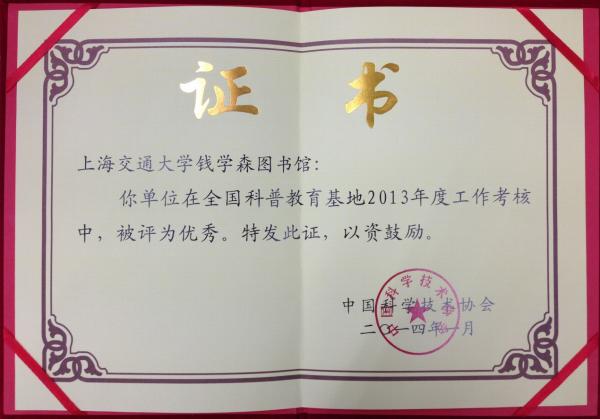 证 书
上海交通大学钱学森图书馆：
你单位在全国科普教育基地2013年度工作考核
中，被评为优秀。特发此证，以资鼓励。
中国科学技术协会
二〇一四年一月
中国科学技术协会